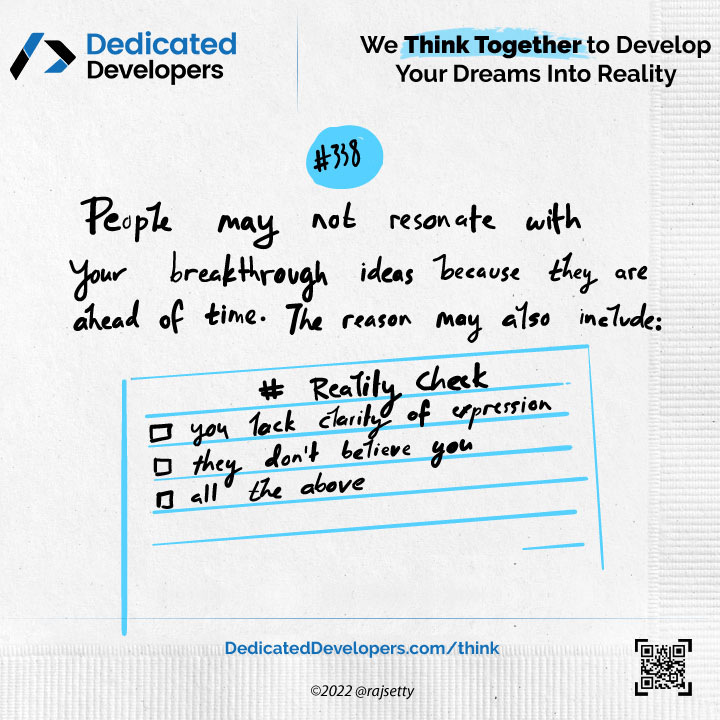 Dedicated
Developers
We Think Together to Develop
Your Dreams Into Reality
#338
People may not resonate with
your breakthrough ideas because they are
ahead of time. The reason may also include:
# Reality Check
you lack clarity of expression
they don't believe you
all the above
DedicatedDevelopers.com/think
©2022 @rajsetty